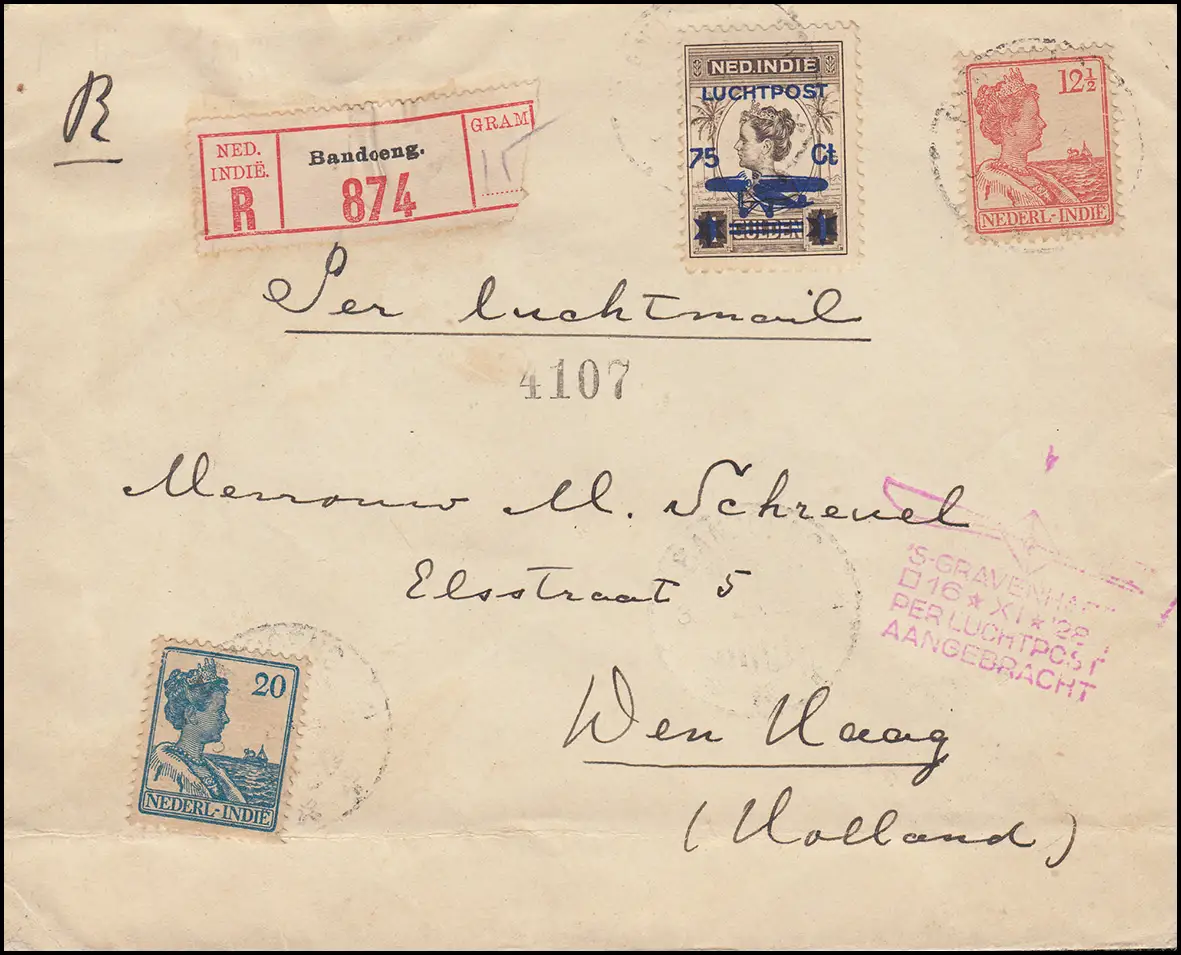 R
NED.
INDIË.
R
Bandoeng.
874
GRAM
15
NED. INDIË
LUCHTPOST
75 Ct
1 GULDEN 1
12½
NEDERL-INDIE
Per luchtmail
4107
Mevrouw M. Schrevel
Elsstraat 5
Den Haag
(Holland)
'S-GRAVENHAGE
16 ★ XI ★ '28
PER LUCHTPOST
AANGEBRACHT
20
NEDERL-INDIE